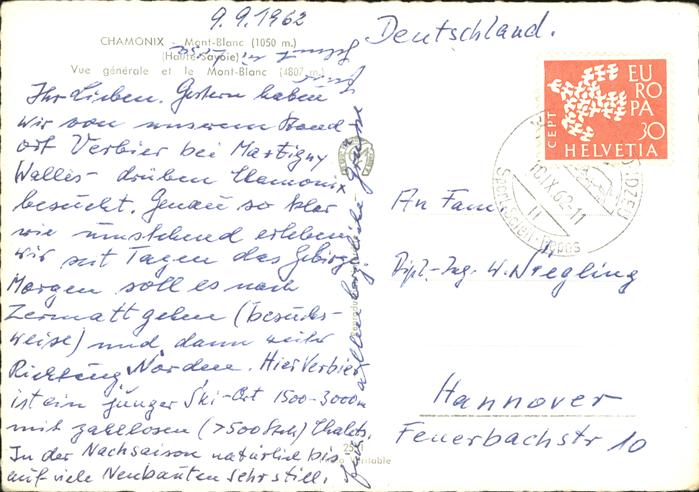 9.9.1962
CHAMONIX - Mont-Blanc (1050 m.)
(Haute-Savoie)
Vue générale et le Mont-Blanc (4807 m.)
Ihr Lieben. Gestern haben
wir von unserem Stand
ort Verbier bei Martigny
Wallis - drüben Chamonix
besucht. Genau so klar
wie umstehend erleben
wir seit Tagen das Gebirge
Morgen soll es nach
Zermatt gehen (besuchs-
weise) und dann weiter
Richtung Norden. Hier Verbier
ist ein junger Ski-Ort 1500-3000m
mit zahllosen (>500 Stck) Chalets.
In der Nachsaison natürlich bis
auf viele Neubauten sehr still.
allen herzliche Grüsse
Deutschland.
CEPT
EUROPA
30
HELVETIA
10.IX.62-11
II
An Fam.
Dipl.-Ing. W. Niegling
Hannover
Feuerbachstr 10